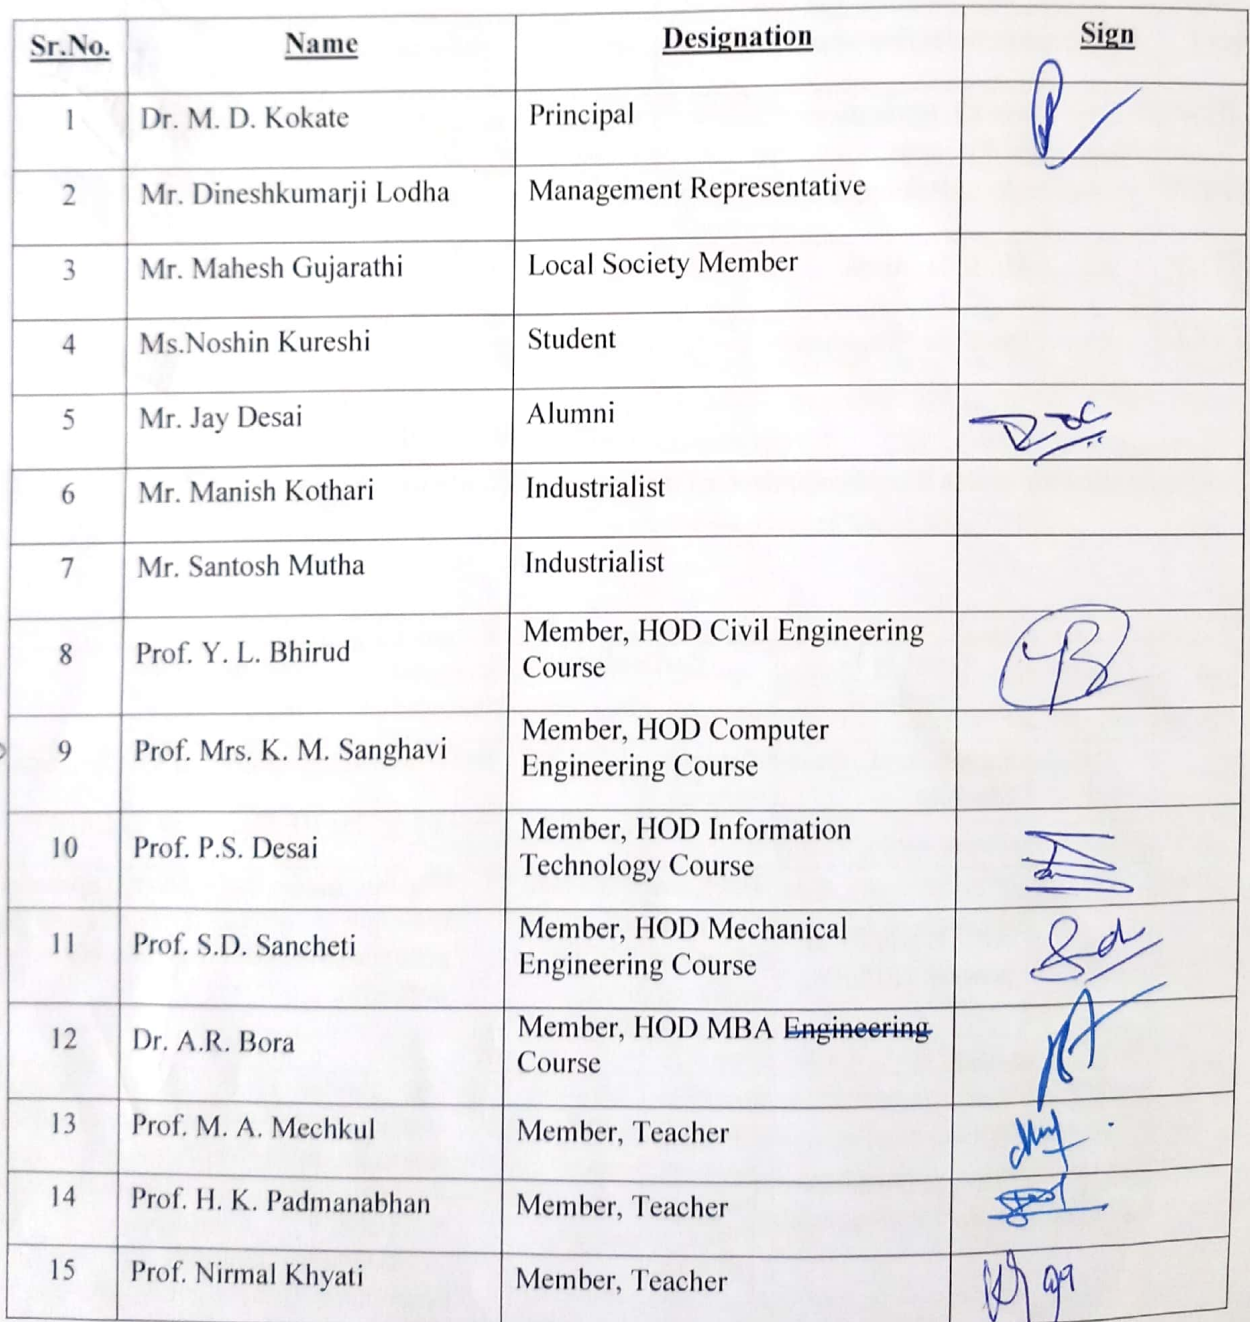 Sr.No. Name Designation Sign
1 Dr. M. D. Kokate Principal
2 Mr. Dineshkumarji Lodha Management Representative
3 Mr. Mahesh Gujarathi Local Society Member
4 Ms.Noshin Kureshi Student
5 Mr. Jay Desai Alumni
6 Mr. Manish Kothari Industrialist
7 Mr. Santosh Mutha Industrialist
8 Prof. Y. L. Bhirud Member, HOD Civil Engineering
Course
9 Prof. Mrs. K. M. Sanghavi Member, HOD Computer
Engineering Course
10 Prof. P.S. Desai Member, HOD Information
Technology Course
11 Prof. S.D. Sancheti Member, HOD Mechanical
Engineering Course
12 Dr. A.R. Bora Member, HOD MBA Engineering
Course
13 Prof. M. A. Mechkul Member, Teacher
14 Prof. H. K. Padmanabhan Member, Teacher
15 Prof. Nirmal Khyati Member, Teacher